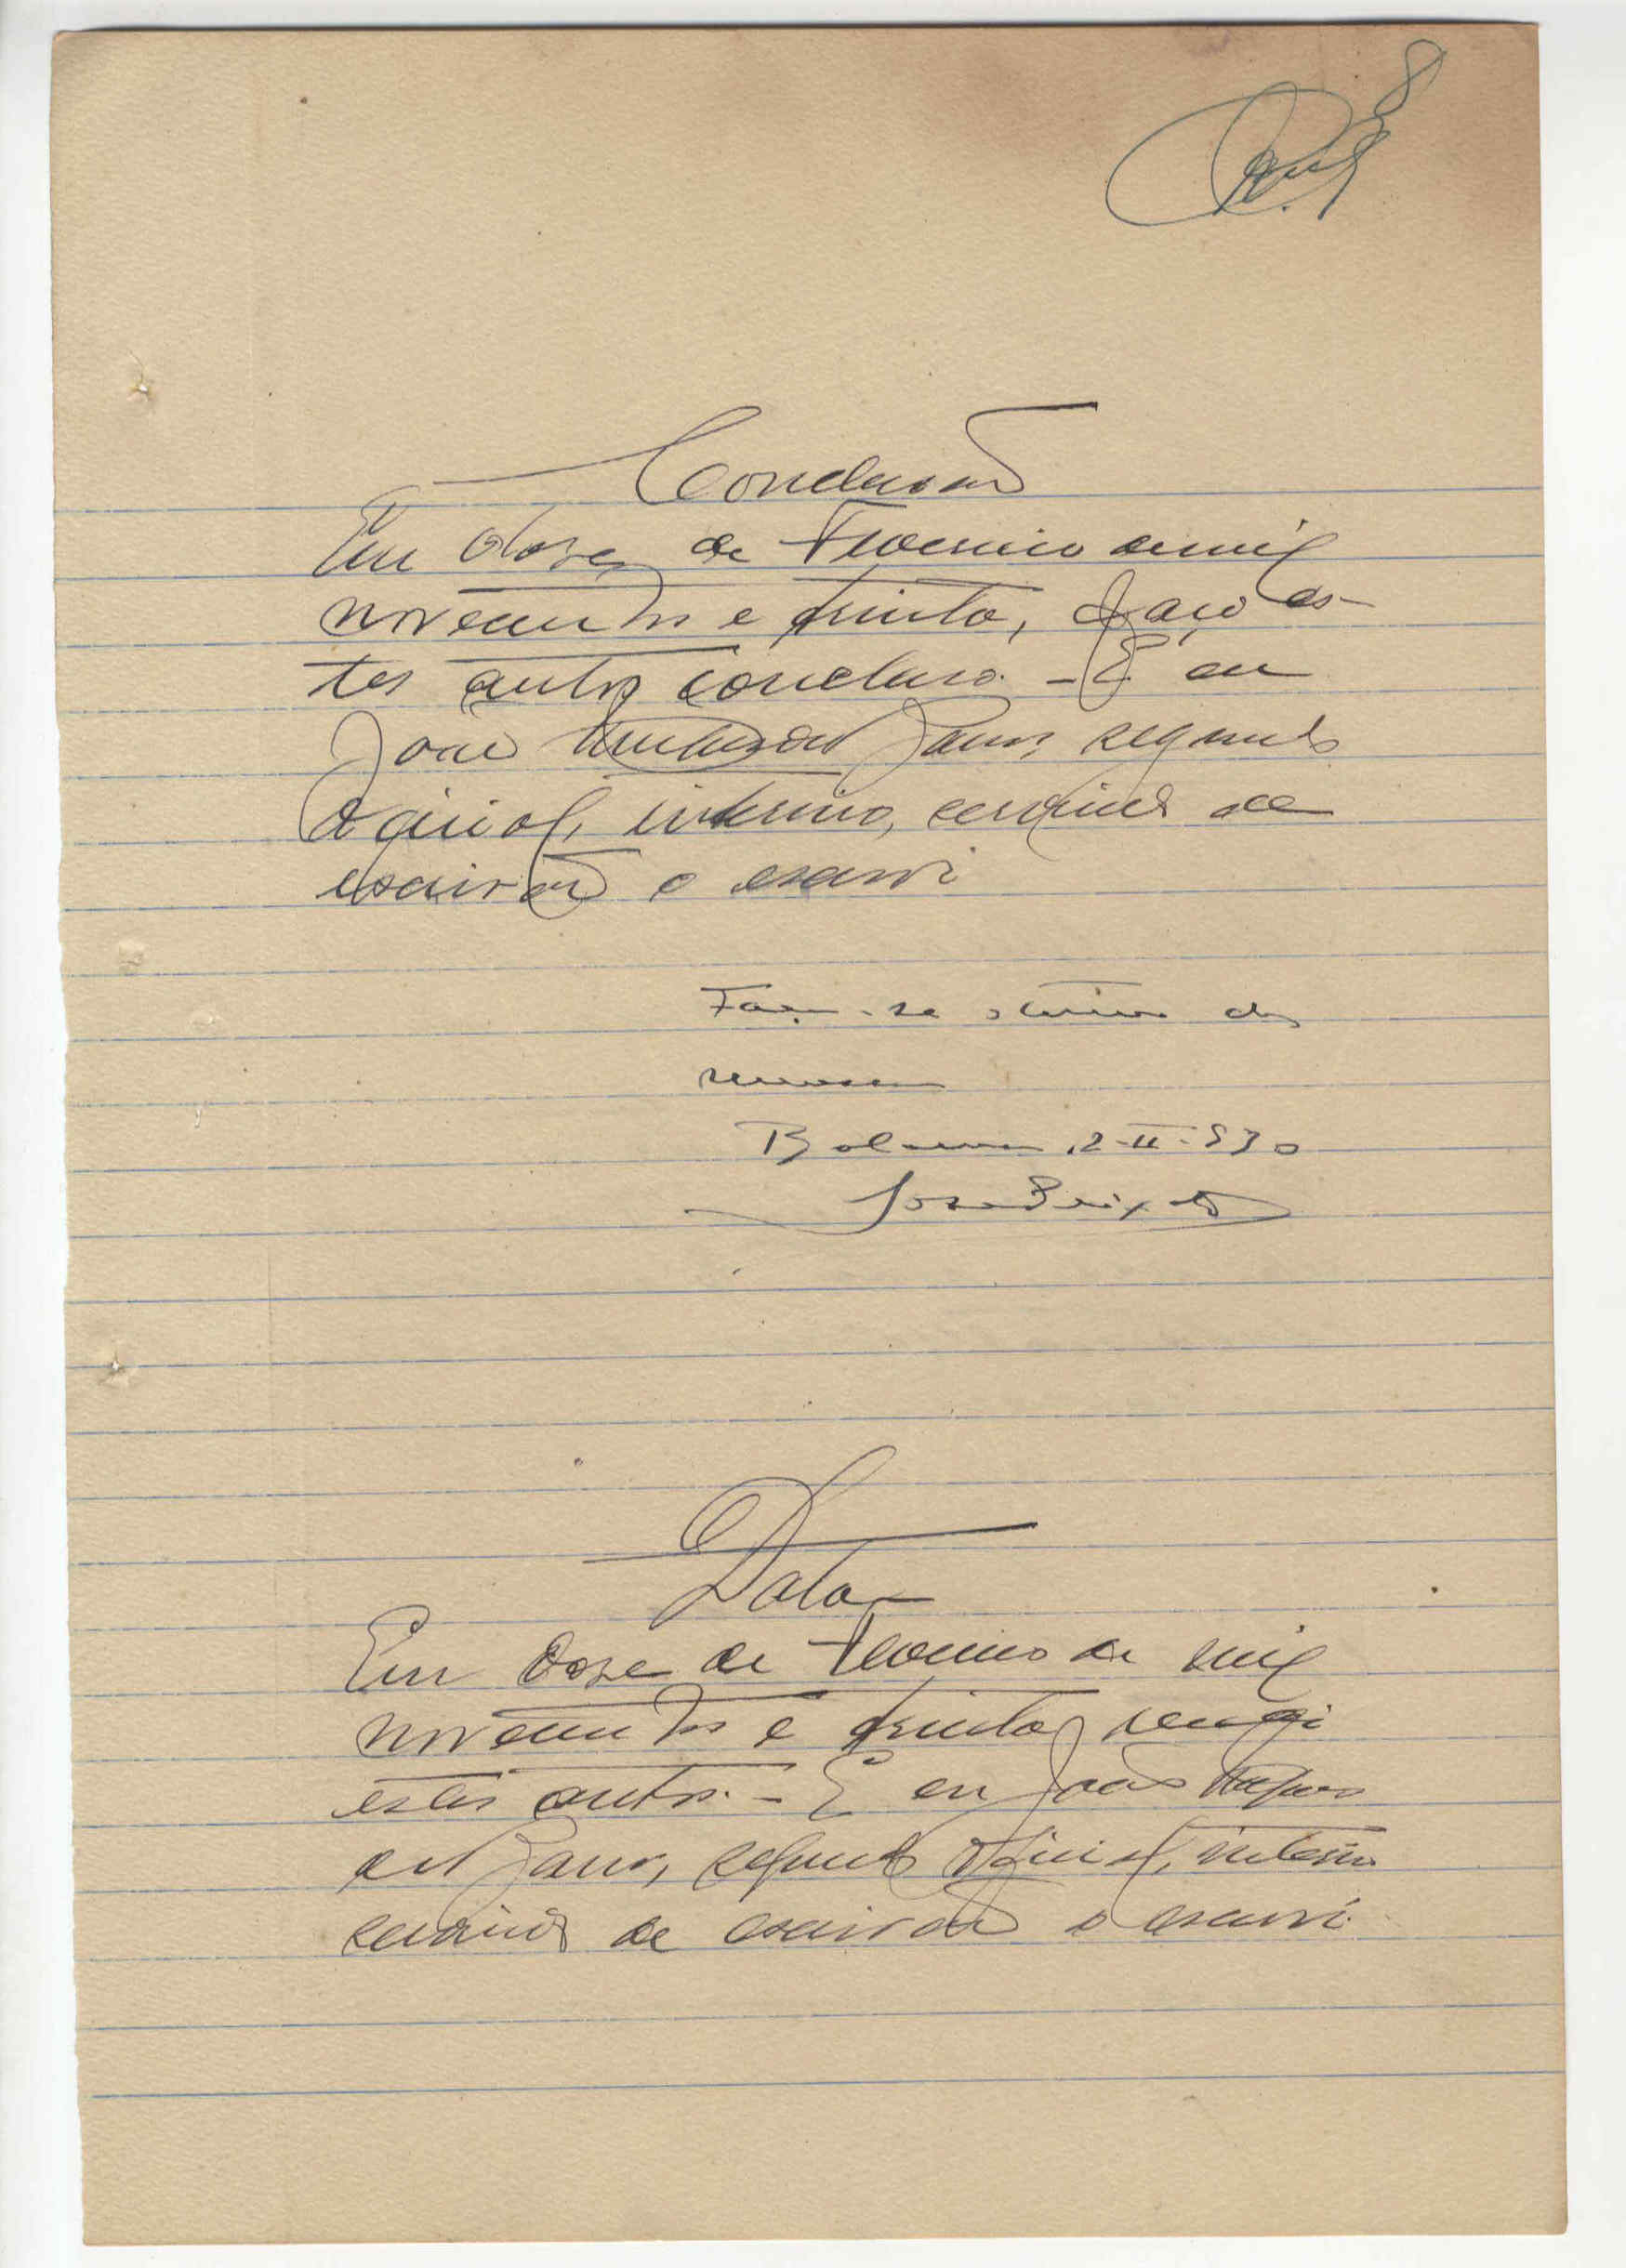 8
Conclusão
Em doze de Fevereiro de mil
novecentos e trinta, faço es-
tes autos conclusos. - E eu
João segundo
oficial, interino, servindo de
escrivão o escrevi
Faça-se o termo de
remessa
Bolama 12-II-930
José Peixoto
Data
Em doze de Fevereiro de mil
novecentos e trinta,
estes autos. - E eu João
segundo oficial, interino
servindo de escrivão o escrevi.